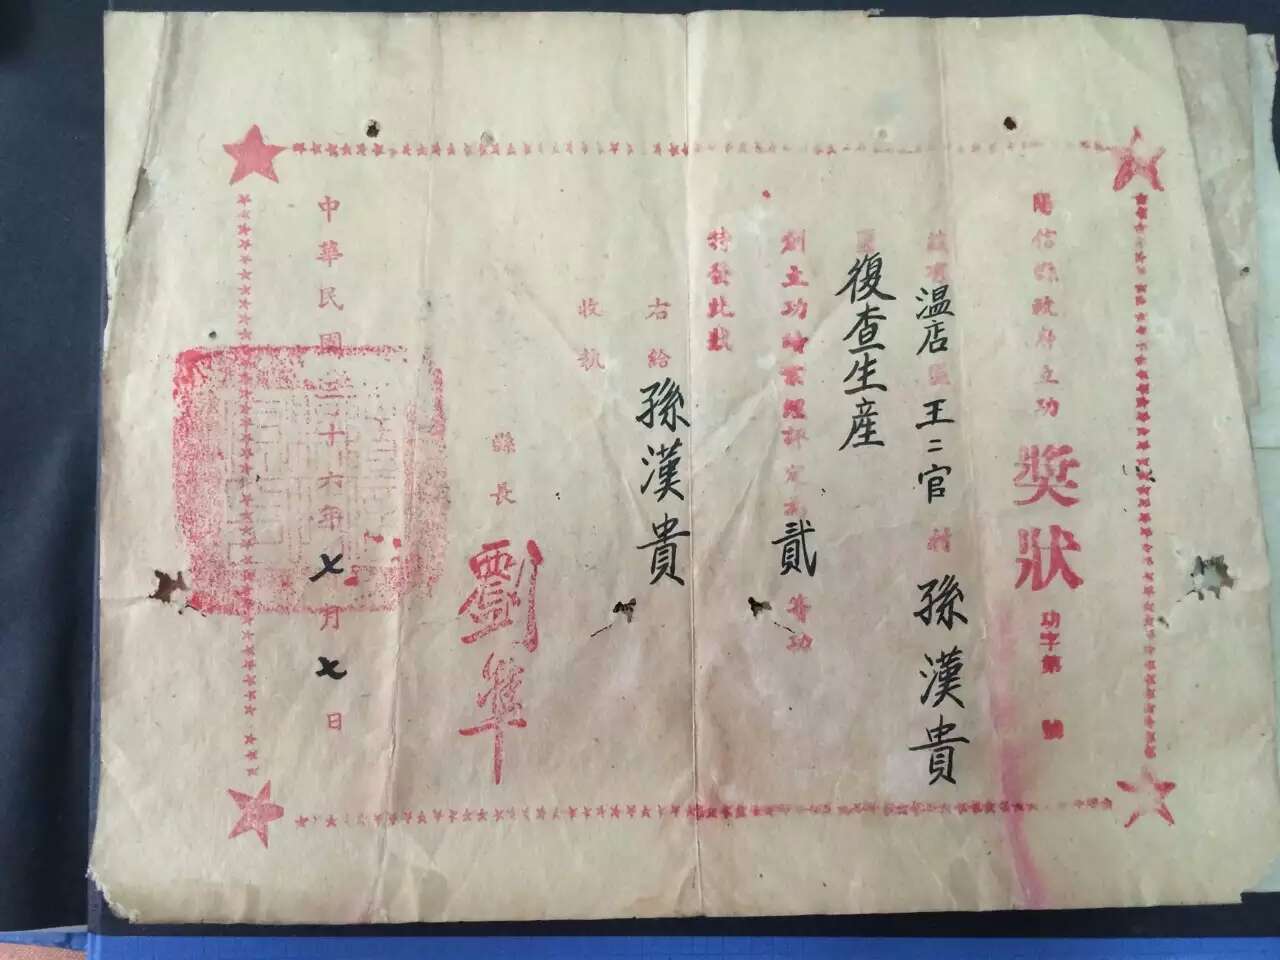 陽信縣政府立功獎狀 功字第 號
兹有温店區王二官村孫漢貴
復查生產
創立功績業經評定為貳等功
特發此狀
右給孫漢貴
收執
縣長
中華民國三十六年七月七日